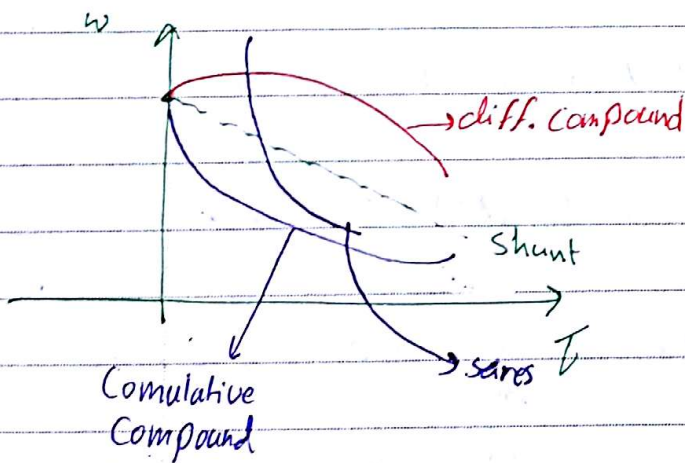 w
diff. compound
Shunt
series
T
Comulative
Compound